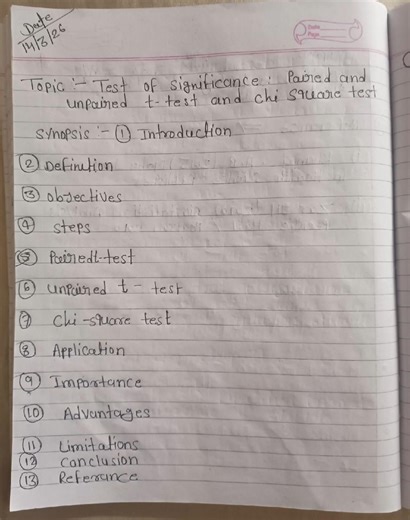 Date
14/3/26
Date
Page
Topic :- Test of significance : Paired and
unpaired t-test and chi square test
Synopsis :- ① Introduction
② Definition
③ objectives
④ steps
⑤ Pairedt-test
⑥ unpaired t - test
⑦ Chi-square test
⑧ Application
⑨ Importance
⑩ Advantages
⑪ Limitations
⑫ Conclusion
⑬ Referance